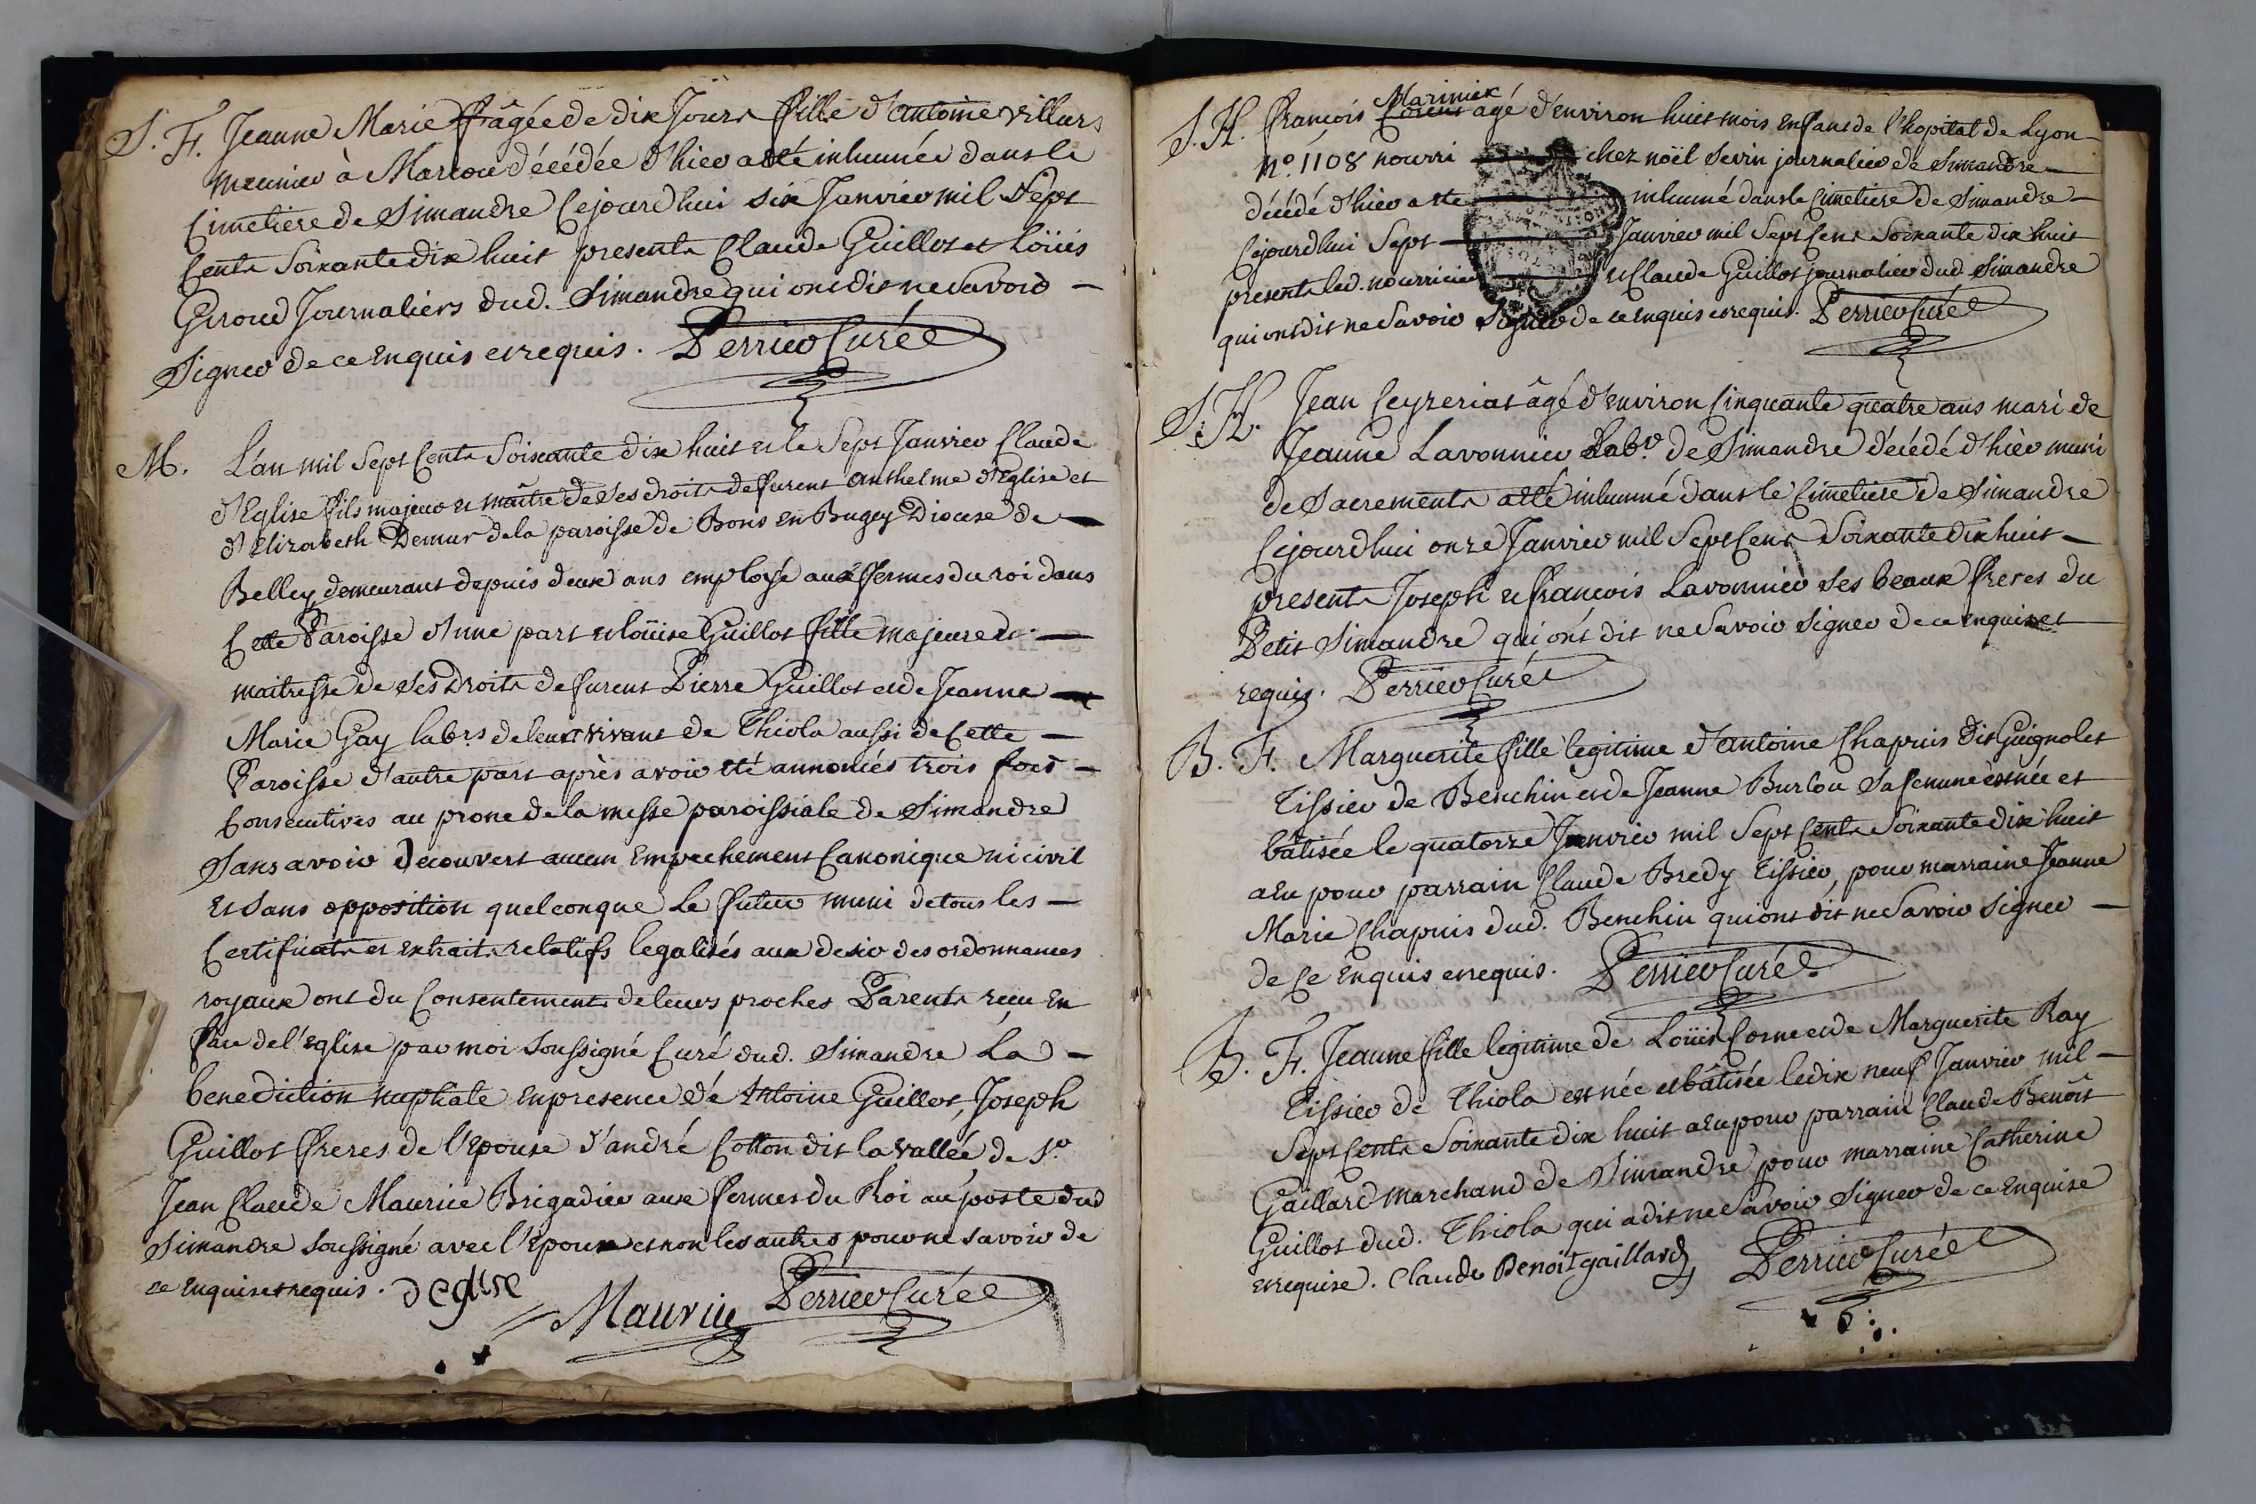 S. F. Jeanne Marie âgée de dix Jours fille d'antoine Villars
meunier à Marcou décédée d'hier a été inhumée dans le
Cimetiere de Simandre Cejourd'hui six Janvier mil Sept
Cents Soixante dix huit presents Claude Guillot et Loüis
Giroud Journaliers dud. Simandre qui ont dit ne Savoir —
Signer de ce Enquis et requis. Perrier Curé
M. L'an mil Sept Cents Soixante dix huit et le Sept Janvier Claude
d'Eglise fils majeur et maître de Ses droits de furent anthelme d'Eglise et
d'Elizabeth Demur de la paroisse de Bons en Bugey Diocese de —
Belley, demeurant depuis deux ans employé aux fermes du roi dans
Cette Paroisse d'une part et loüise Guillot fille majeure et —
maitresse de Ses Droits de furent Pierre Guillot et de Jeanne —
Marie Gay labrs. de leur vivant de Thiola aussi de Cette —
Paroisse d'autre part après avoir été annoncés trois fois —
Consecutives au prone de la messe paroissiale de Simandre
Sans avoir decouvert aucun Empechement Canonique ni civil
et Sans opposition quelconque le futur muni de tous les —
Certificats et extraits relatifs legalisés aux desir des ordonnances
royaux ont du Consentement de leurs proches Parents reçu En
face de l'Eglise par moi Soussigné Curé dud. Simandre La —
benediction nuptiale En presence de Antoine Guillot, Joseph
Guillot freres de l'Epouse d'andré Cotton dit la vallée de Sr.
Jean Claude Maurice Brigadier aux fermes du Roi au poste dud
Simandre Soussigné avec l'Epoux et non les autres pour ne savoir de
ce Enquis et requis. deglise
Maurice Perrier Curé
S. H. françois Marinier Corent agé d'environ huit mois enfant de l'hopital de Lyon
N°. 1108 nourri chez noël Sevin journalier de Simandre —
décédé d'hier a été inhumé dans le Cimetiere de Simandre —
Cejourd'hui Sept Janvier mil Sept Cent Soixante dix huit
presents led. nourricier et Claude Guillot journalier dud. Simandre
qui ont dit ne Savoir Signer de ce enquis et requis. Perrier Curé
S. H. Jean Ceyzeriat âgé d'environ Cinquante quatre ans mari de
Jeanne Lavonnier Labr. de Simandre décédé d'hier muni
de Sacrements a été inhumé dans le Cimetiere de Simandre
Cejourd'hui onze Janvier mil Sept Cent Soixante dix huit —
presents Joseph et françois Lavonnier Ses beaux freres du
Petit Simandre qui ont dit ne Savoir Signer de ce enquis et
requis. Perrier Curé
B. F. Marguerite fille legitime d'antoine Chapuis dit Guignolet
Tissier de Benchin et de Jeanne Burlou Sa femme est née et
bâtisée le quatorze Janvier mil Sept Cents Soixante dix huit
a Eu pour parrain Claude Bredy Tissier, pour marraine Jeanne
Marie Chapuis dud. Benchin qui ont dit ne Savoir Signer —
de Ce Enquis et requis. Perrier Curé
B. F. Jeanne fille legitime de Loüis Corne et de Marguerite Ray
Tissier de Thiola est née et bâtisée le dix neuf Janvier mil —
Sept Cents Soixante dix huit a Eu pour parrain Claude Benoît
Gaillard marchand de Simandre pour marraine Catherine
Guillot dud. Thiola qui a dit ne Savoir Signer de ce Enquise
et requise. Claude Benoit gaillard Perrier Curé